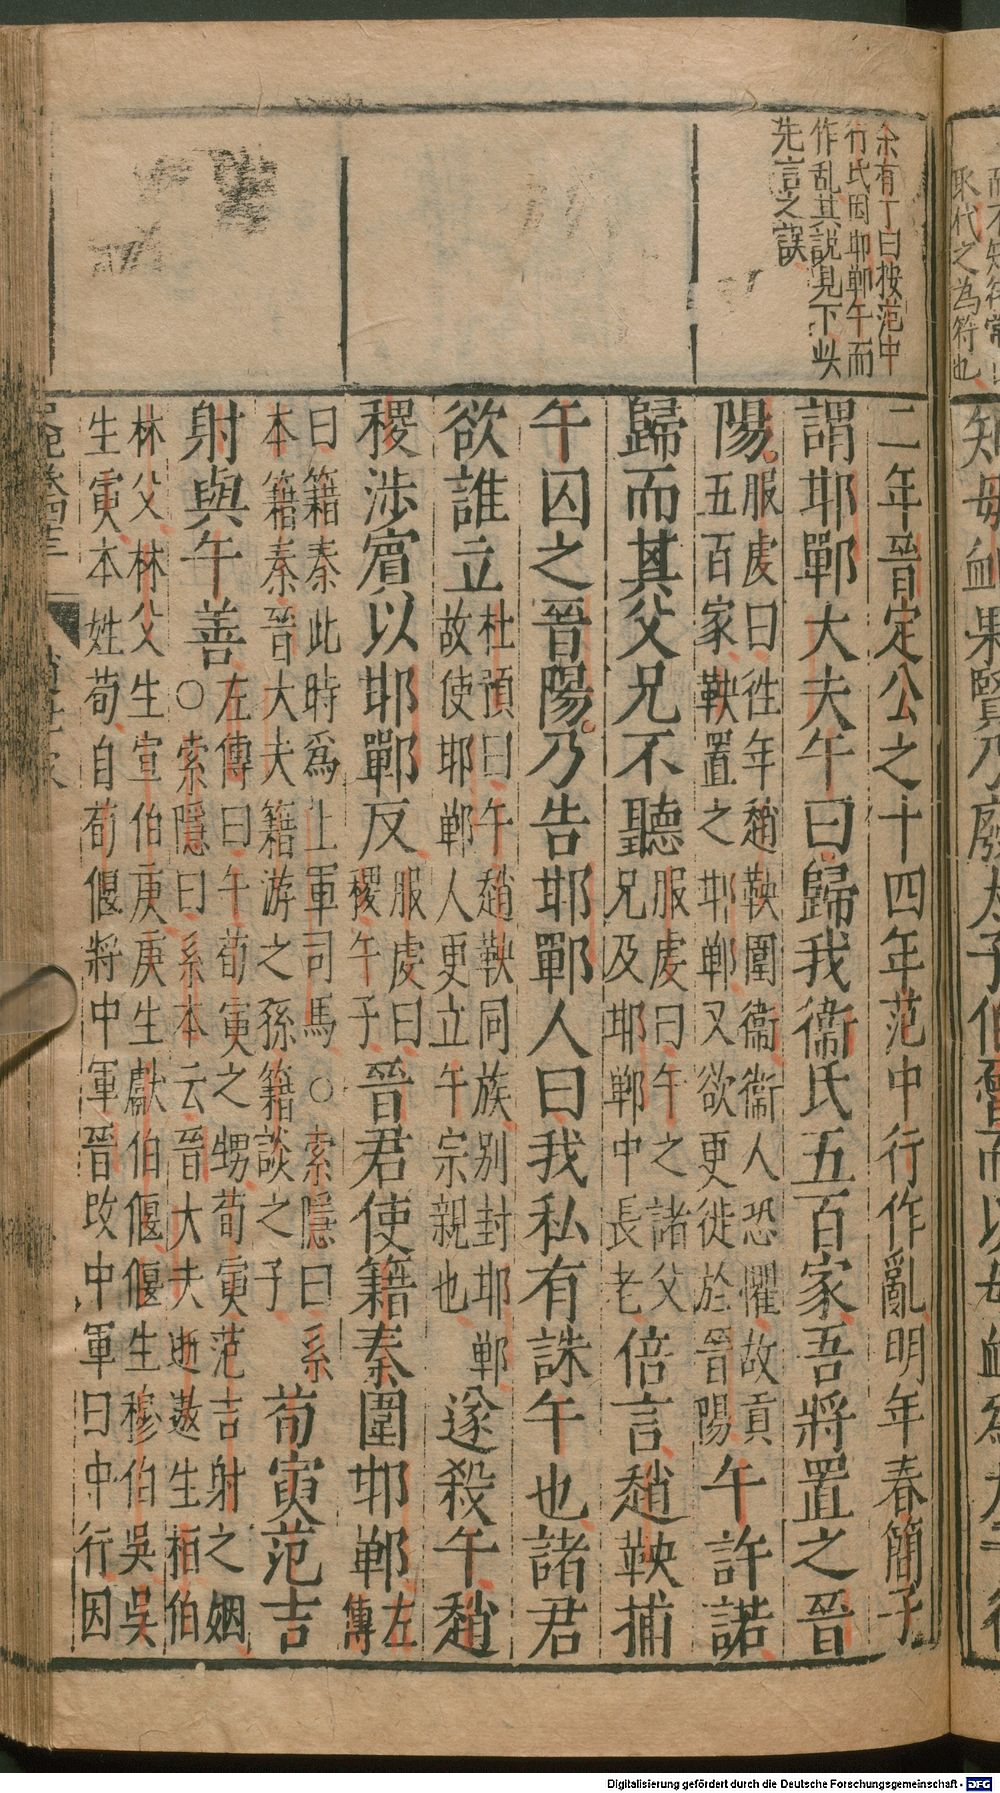 余有丁曰按范中
行氏因邯鄲午而
作乱其說見下此
先言之誤
二年晉定公之十四年范中行作亂明年春簡子
謂邯鄲大夫午曰歸我衞氏五百家吾將置之晉
陽服虔曰徃年趙鞅圍衞衞人恐懼故貢
五百家鞅置之邯鄲又欲更徙於晉陽午許諾
歸而其父兄不聽服虔曰午之諸父
兄及邯鄲中長老倍言趙鞅捕
午囚之晉陽乃告邯鄲人曰我私有誅午也諸君
欲誰立杜預曰午趙鞅同族別封邯鄲
故使邯鄲人更立午宗親也遂殺午趙
稷涉賔以邯鄲反服虔曰
稷午子晉君使籍秦圍邯鄲左
傳
曰籍秦此時爲上軍司馬○索隱曰系
本籍秦晉大夫籍游之孫籍談之子荀寅范吉
射與午善左傳曰午荀寅之甥荀寅范吉射之姻
○索隱曰系本云晉大夫逝遨生桓伯
林父林父生宣伯庚庚生獻伯偃偃生穆伯吳吳
生寅本姓荀自荀偃將中軍晉改中軍曰中行因
敢代之為符也
知母血果賢乃廢太子伯魯而以母血爲太子
Digitalisierung gefördert durch die Deutsche Forschungsgemeinschaft - DFG